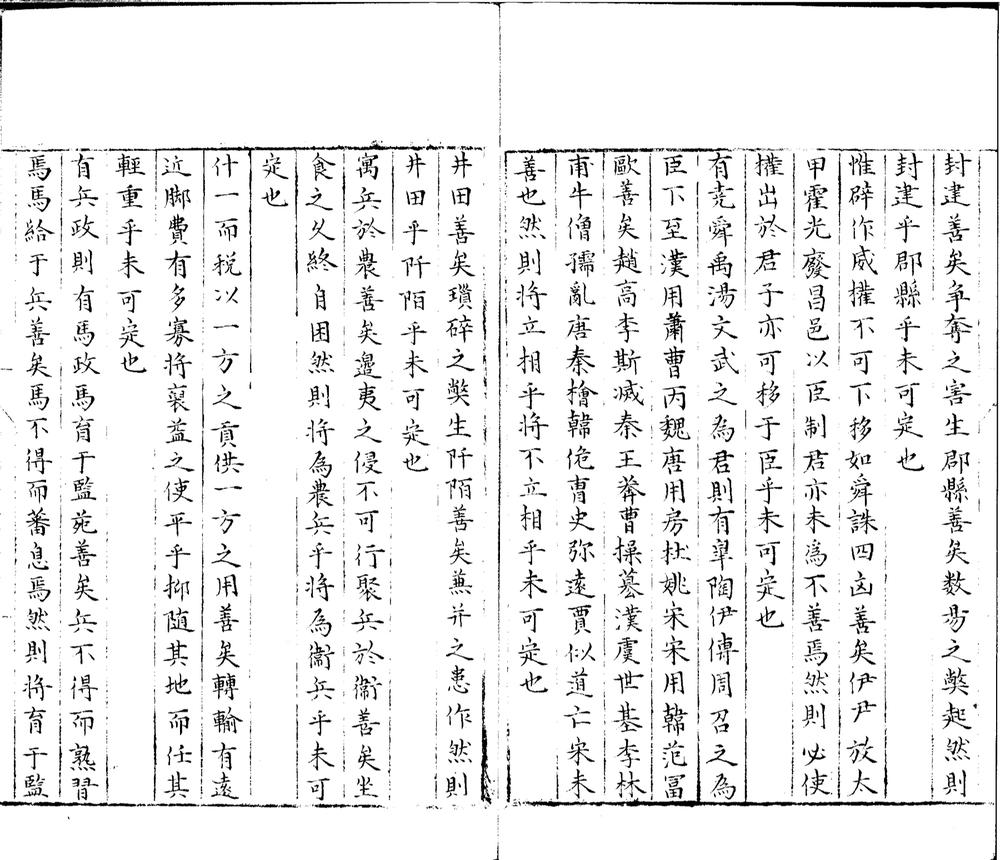 封建善矣争奪之害生郡縣善矣数易之獘起然則
封建乎郡縣乎未可定也
惟辟作威權不可下移如舜誅四凶善矣伊尹放太
甲霍光廢昌邑以臣制君亦未為不善焉然則必使
權出於君子亦可移于臣乎未可定也
有堯舜禹湯文武之為君則有臯陶伊傅周召之為
臣下至漢用蕭曹丙魏唐用房杜姚宋宋用韓范冨
歐善矣趙高李斯滅秦王莽曹操簒漢虞世基李林
甫牛僧孺亂唐秦檜韓侂胄史弥遠賈似道亡宋未
善也然則将立相乎将不立相乎未可定也
井田善矣瑣碎之獘生阡陌善矣蒹并之患作然則
井田乎阡陌乎未可定也
寓兵於農善矣邉夷之侵不可行聚兵於衞善矣坐
食之久終自困然則将為農兵乎将為衞兵乎未可
定也
什一而税以一方之貢供一方之用善矣轉輸有遠
近脚費有多寡将裒益之使平乎抑随其地而任其
輕重乎未可定也
有兵政則有馬政馬育于監苑善矣兵不得而熟習
焉馬給于兵善矣馬不得而蕃息焉然則将育于監